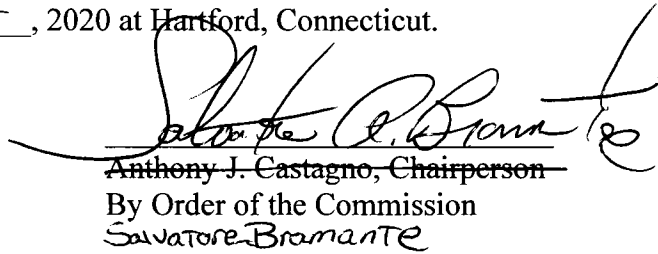 __, 2020 at Hartford, Connecticut.
Salvatore A. Bramante
Anthony J. Castagno, Chairperson
By Order of the Commission
Salvatore Bramante